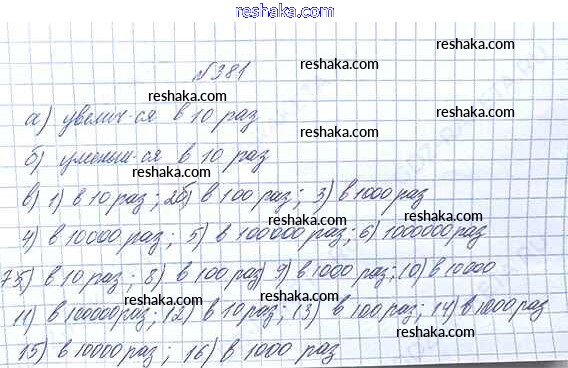 reshaka.com
reshaka.com
reshaka.com
№381
reshaka.com
reshaka.com
а) увелич-ся в 10 раз
reshaka.com
б) уменьш-ся в 10 раз
reshaka.com
reshaka.com
в) 1) в 10 раз; 2) в 100 раз; 3) в 1000 раз
reshaka.com
4) в 10000 раз; 5) в 100000 раз; 6) 1000000 раз
reshaka.com
7) в 10 раз; 8) в 100 раз 9) в 1000 раз; 10) в 10000
reshaka.com
11) в 100000 раз; 12) в 10 раз; 13) в 100 раз; 14) в 1000 раз
reshaka.com
15) в 10000 раз; 16) в 1000 раз
reshaka.com